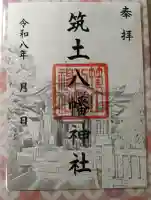 奉拝
筑土八幡神社
令和八年 月 日